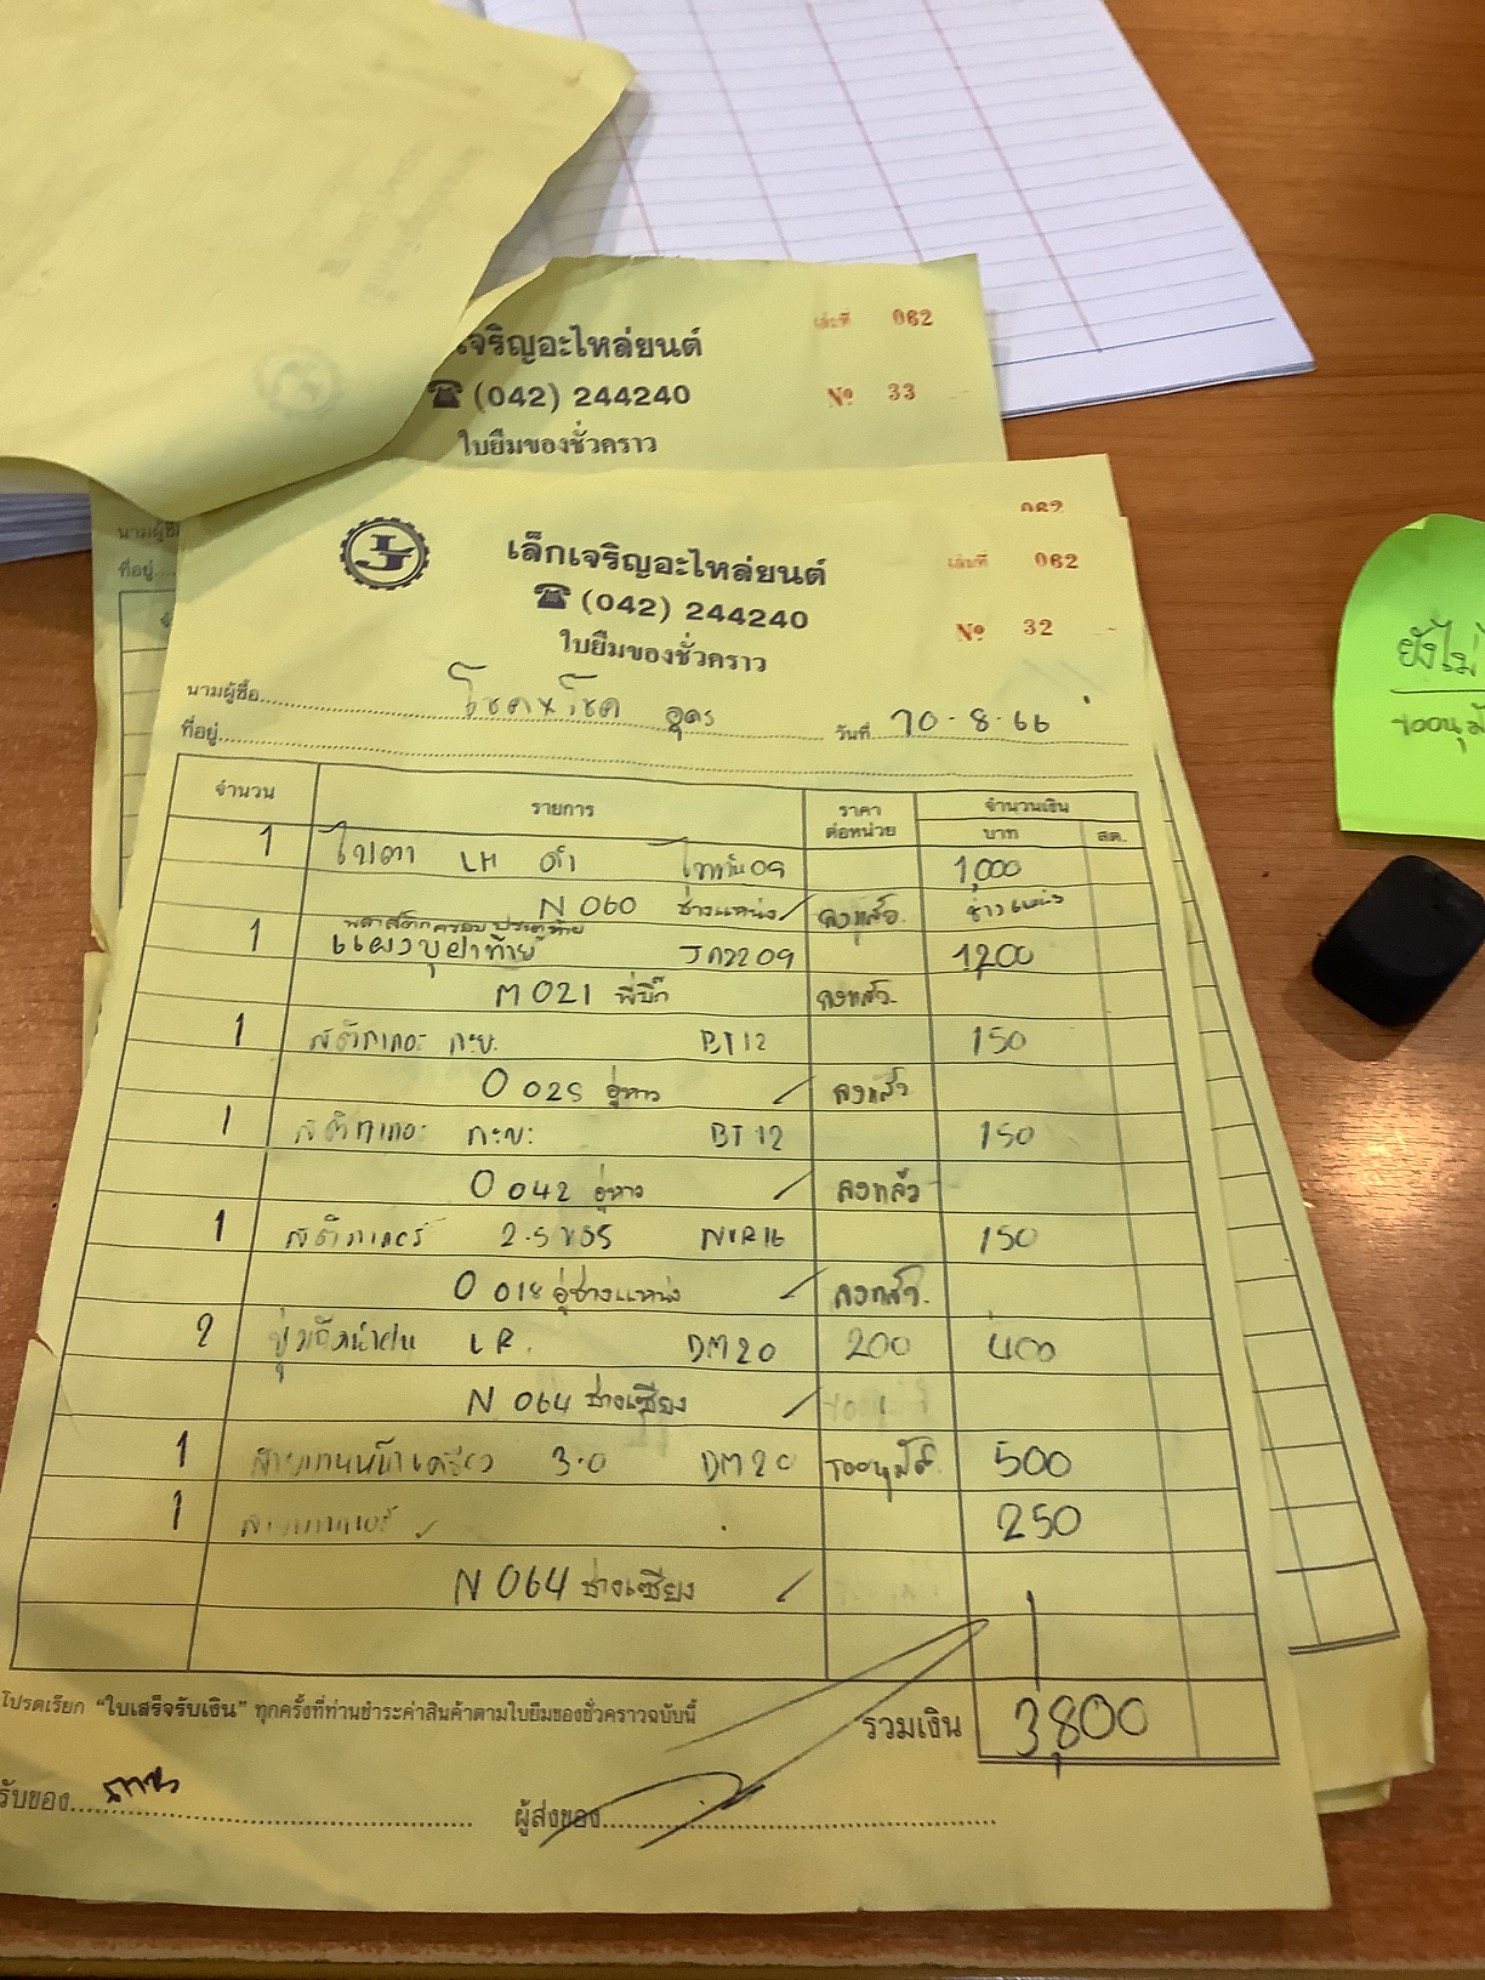 เจริญอะไหล่ยนต์
เล่มที่ 062
☎ (042) 244240
Nº 33
ใบยืมของชั่วคราว
062
เล็กเจริญอะไหล่ยนต์
เล่มที่ 062
☎ (042) 244240
Nº 32
ใบยืมของชั่วคราว
นามผู้ซื้อ โชค+โชค อุดร วันที่ 10-8-66
ที่อยู่
จำนวน รายการ ราคาต่อหน่วย จำนวนเงิน
บาท สต.
1 ไฟตา LH ดำ 09 1,000
N 060 ช่างแหน่ง ลงแล้ว ช่างแหน่ง
พลาสติกครอบประตูท้าย
1 แผงบุฝาท้าย 09 1200
M 021 พี่บิ๊ก ลงแล้ว
1 สติกเกอร์ กะบะ BT12 150
O 025 อู่หาว ลงแล้ว
1 สติกเกอร์ กะบะ BT12 150
O 042 อู่หาว ลงแล้ว
1 สติกเกอร์ 150
O 018 อู่ช่างแหน่ง ลงแล้ว
2 LR. DM20 200 400
N 064 ช่างเซียง
1 3.0 DM20 รออนุมัติ 500
1 250
N 064 ช่างเซียง
โปรดเรียก "ใบเสร็จรับเงิน" ทุกครั้งที่ท่านชำระค่าสินค้าตามใบยืมของชั่วคราวฉบับนี้
รวมเงิน 3,800
รับของ ผู้ส่งของ
นามผู้ซื้
ที่อยู่
ยังไม่
รออนุมั